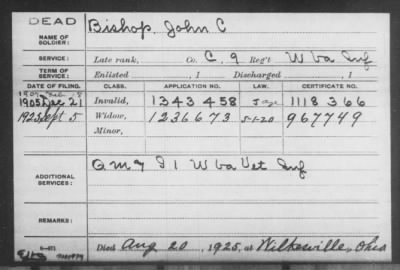 DEAD
NAME OF SOLDIER: Bishop, John C
SERVICE: Late rank, Co. C, 9 Reg't W Va Inf
TERM OF SERVICE: Enlisted , 1 Discharged , 1
DATE OF FILING. CLASS. APPLICATION NO. LAW. CERTIFICATE NO.
1905 Dec 21 Invalid, 1343458 1118366
1925 Sept 5 Widow, 1236673 5-1-20 967749
Minor,
ADDITIONAL SERVICES: I 1 W Va Vet Inf
REMARKS:
Died Aug 20, 1925, at Wilkesville, Ohio